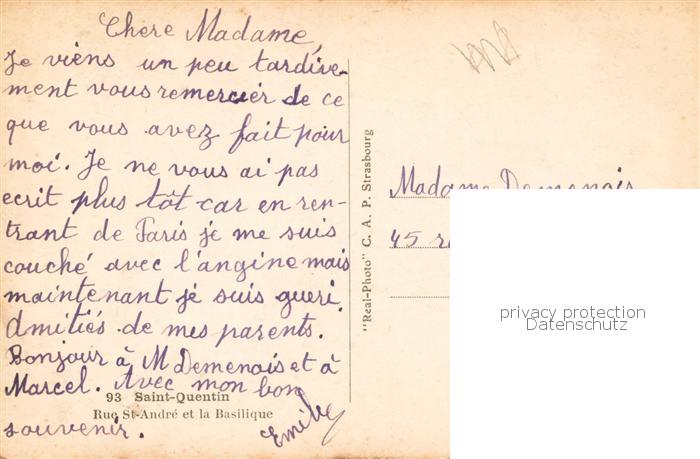 Chere Madame,
Je viens un peu tardive-
ment vous remercier de ce
que vous avez fait pour
moi. Je ne vous ai pas
ecrit plus tôt car en ren-
trant de Paris je me suis
couché avec l'angine mais
maintenant je suis gueri.
Amitiés de mes parents.
Bonjour à M Demenois et à
Marcel. Avec mon bon
souvenir.
93 Saint-Quentin
Rue St-André et la Basilique
"Real-Photo" C. A. P. Strasbourg
Madame Demenois
45
privacy protection
Datenschutz